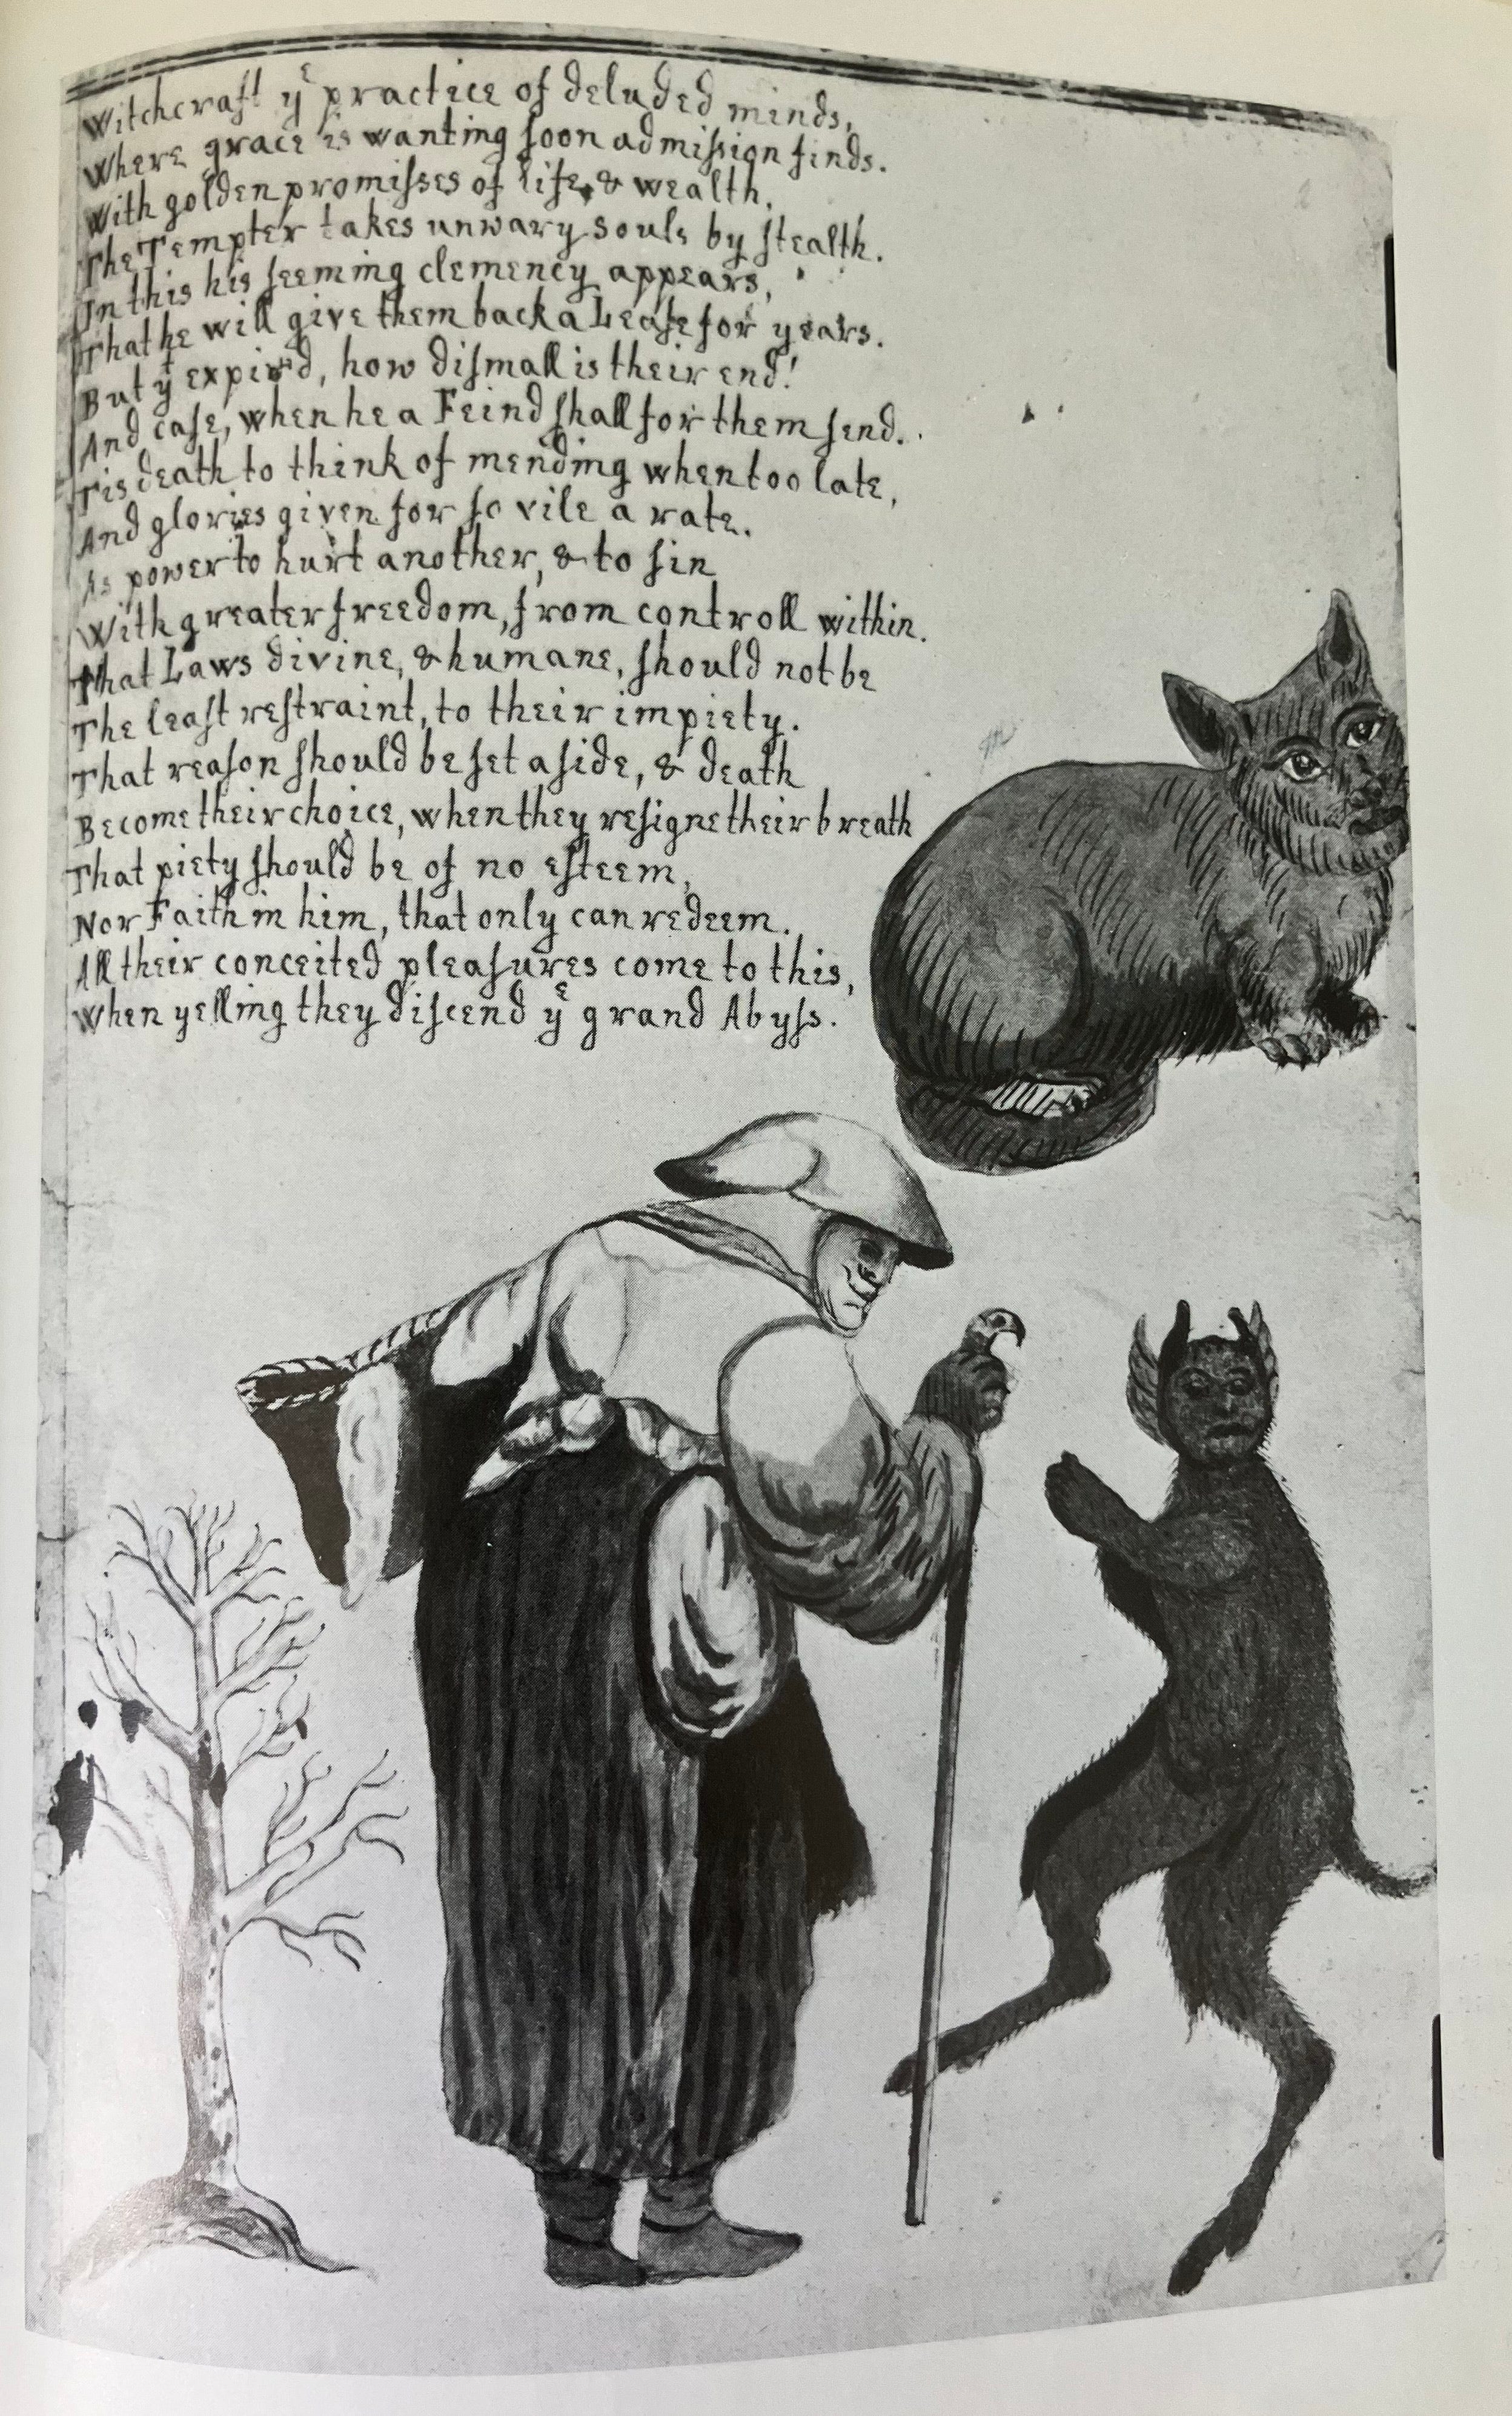 Witchcraft yᵉ practice of deluded minds,
Where grace is wanting soon admission finds.
With golden promisses of life, & wealth,
The Tempter takes unwary souls by stealth.
In this his seeming clemency appears,
That he will give them back a Lease for years.
But yᵗ expir'd, how dismall is their end!
And case, when he a Feind shall for them send.
Tis death to think of mending when too late,
And glories given for so vile a rate.
As power to hurt another, & to sin
With greater freedom, from controll within.
That Laws divine, & humane, should not be
The least restraint, to their impiety.
That reason should be set aside, & death
Become their choice, when they resigne their breath
That piety should be of no esteem,
Nor Faith in him, that only can redeem.
All their conceited pleasures come to this,
When yelling they discend yᵉ grand Abyss.